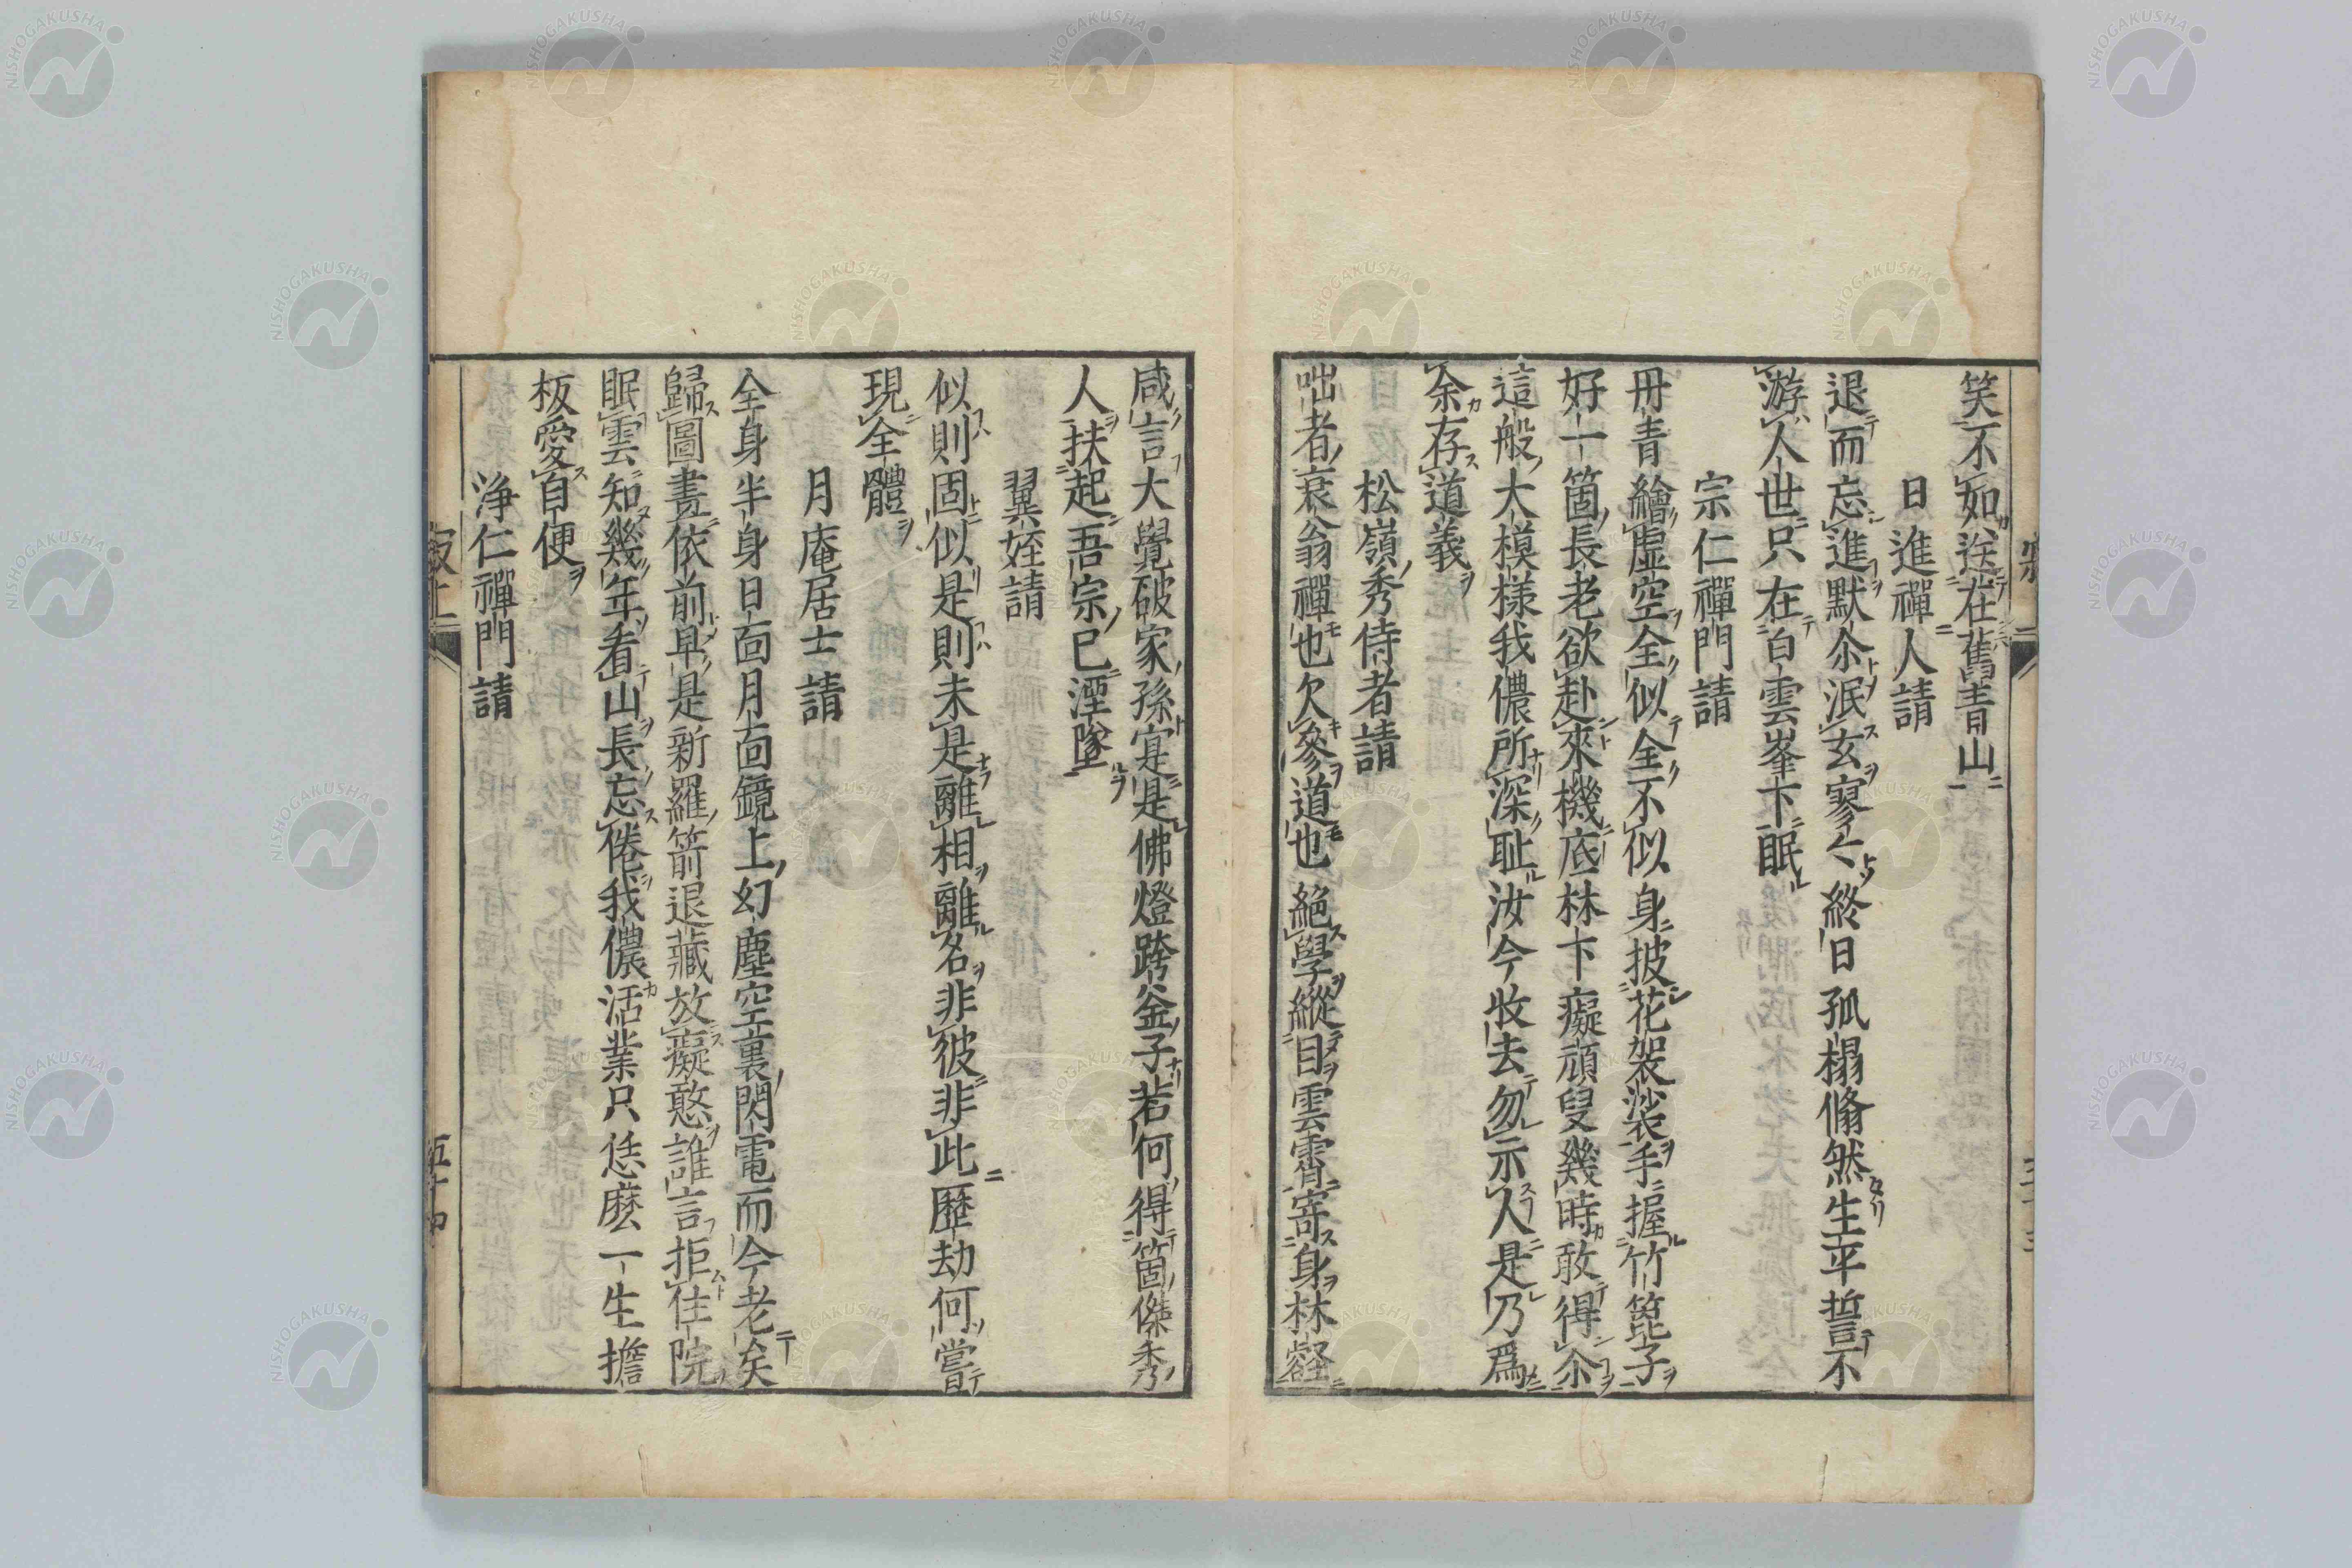 笑不如送在舊青山
日進禪人請
退而忘進默尒泯玄寥〻終日孤榻翛然生平誓不
游人世只在白雲峯下眠
宗仁禪門請
丹青繪虛空全似全不似身披花袈裟手握竹箆子
好一箇長老欲赴來機底林下癡頑叟幾時敢得尒
這般大模樣我儂所深耻汝今收去勿示人是乃爲
余存道義
松嶺秀侍者請
咄者衰翁禪也欠參道也絕學縱目雲霄寄身林壑
咸言大覺破家孫寔是佛燈跨釜子若何得箇傑秀
人扶起吾宗已湮墜
翼姪請
似則固似是則未是離相離名非彼非此歷劫何嘗
現全體
月庵居士請
全身半身日面月面鏡上幻塵空裏閃電而今老矣
歸圖畫依前早是新羅箭退藏放癡憨誰言拒住院
眠雲知幾年看山長忘倦我儂活業只恁麽一生擔
板愛自便
淨仁禪門請